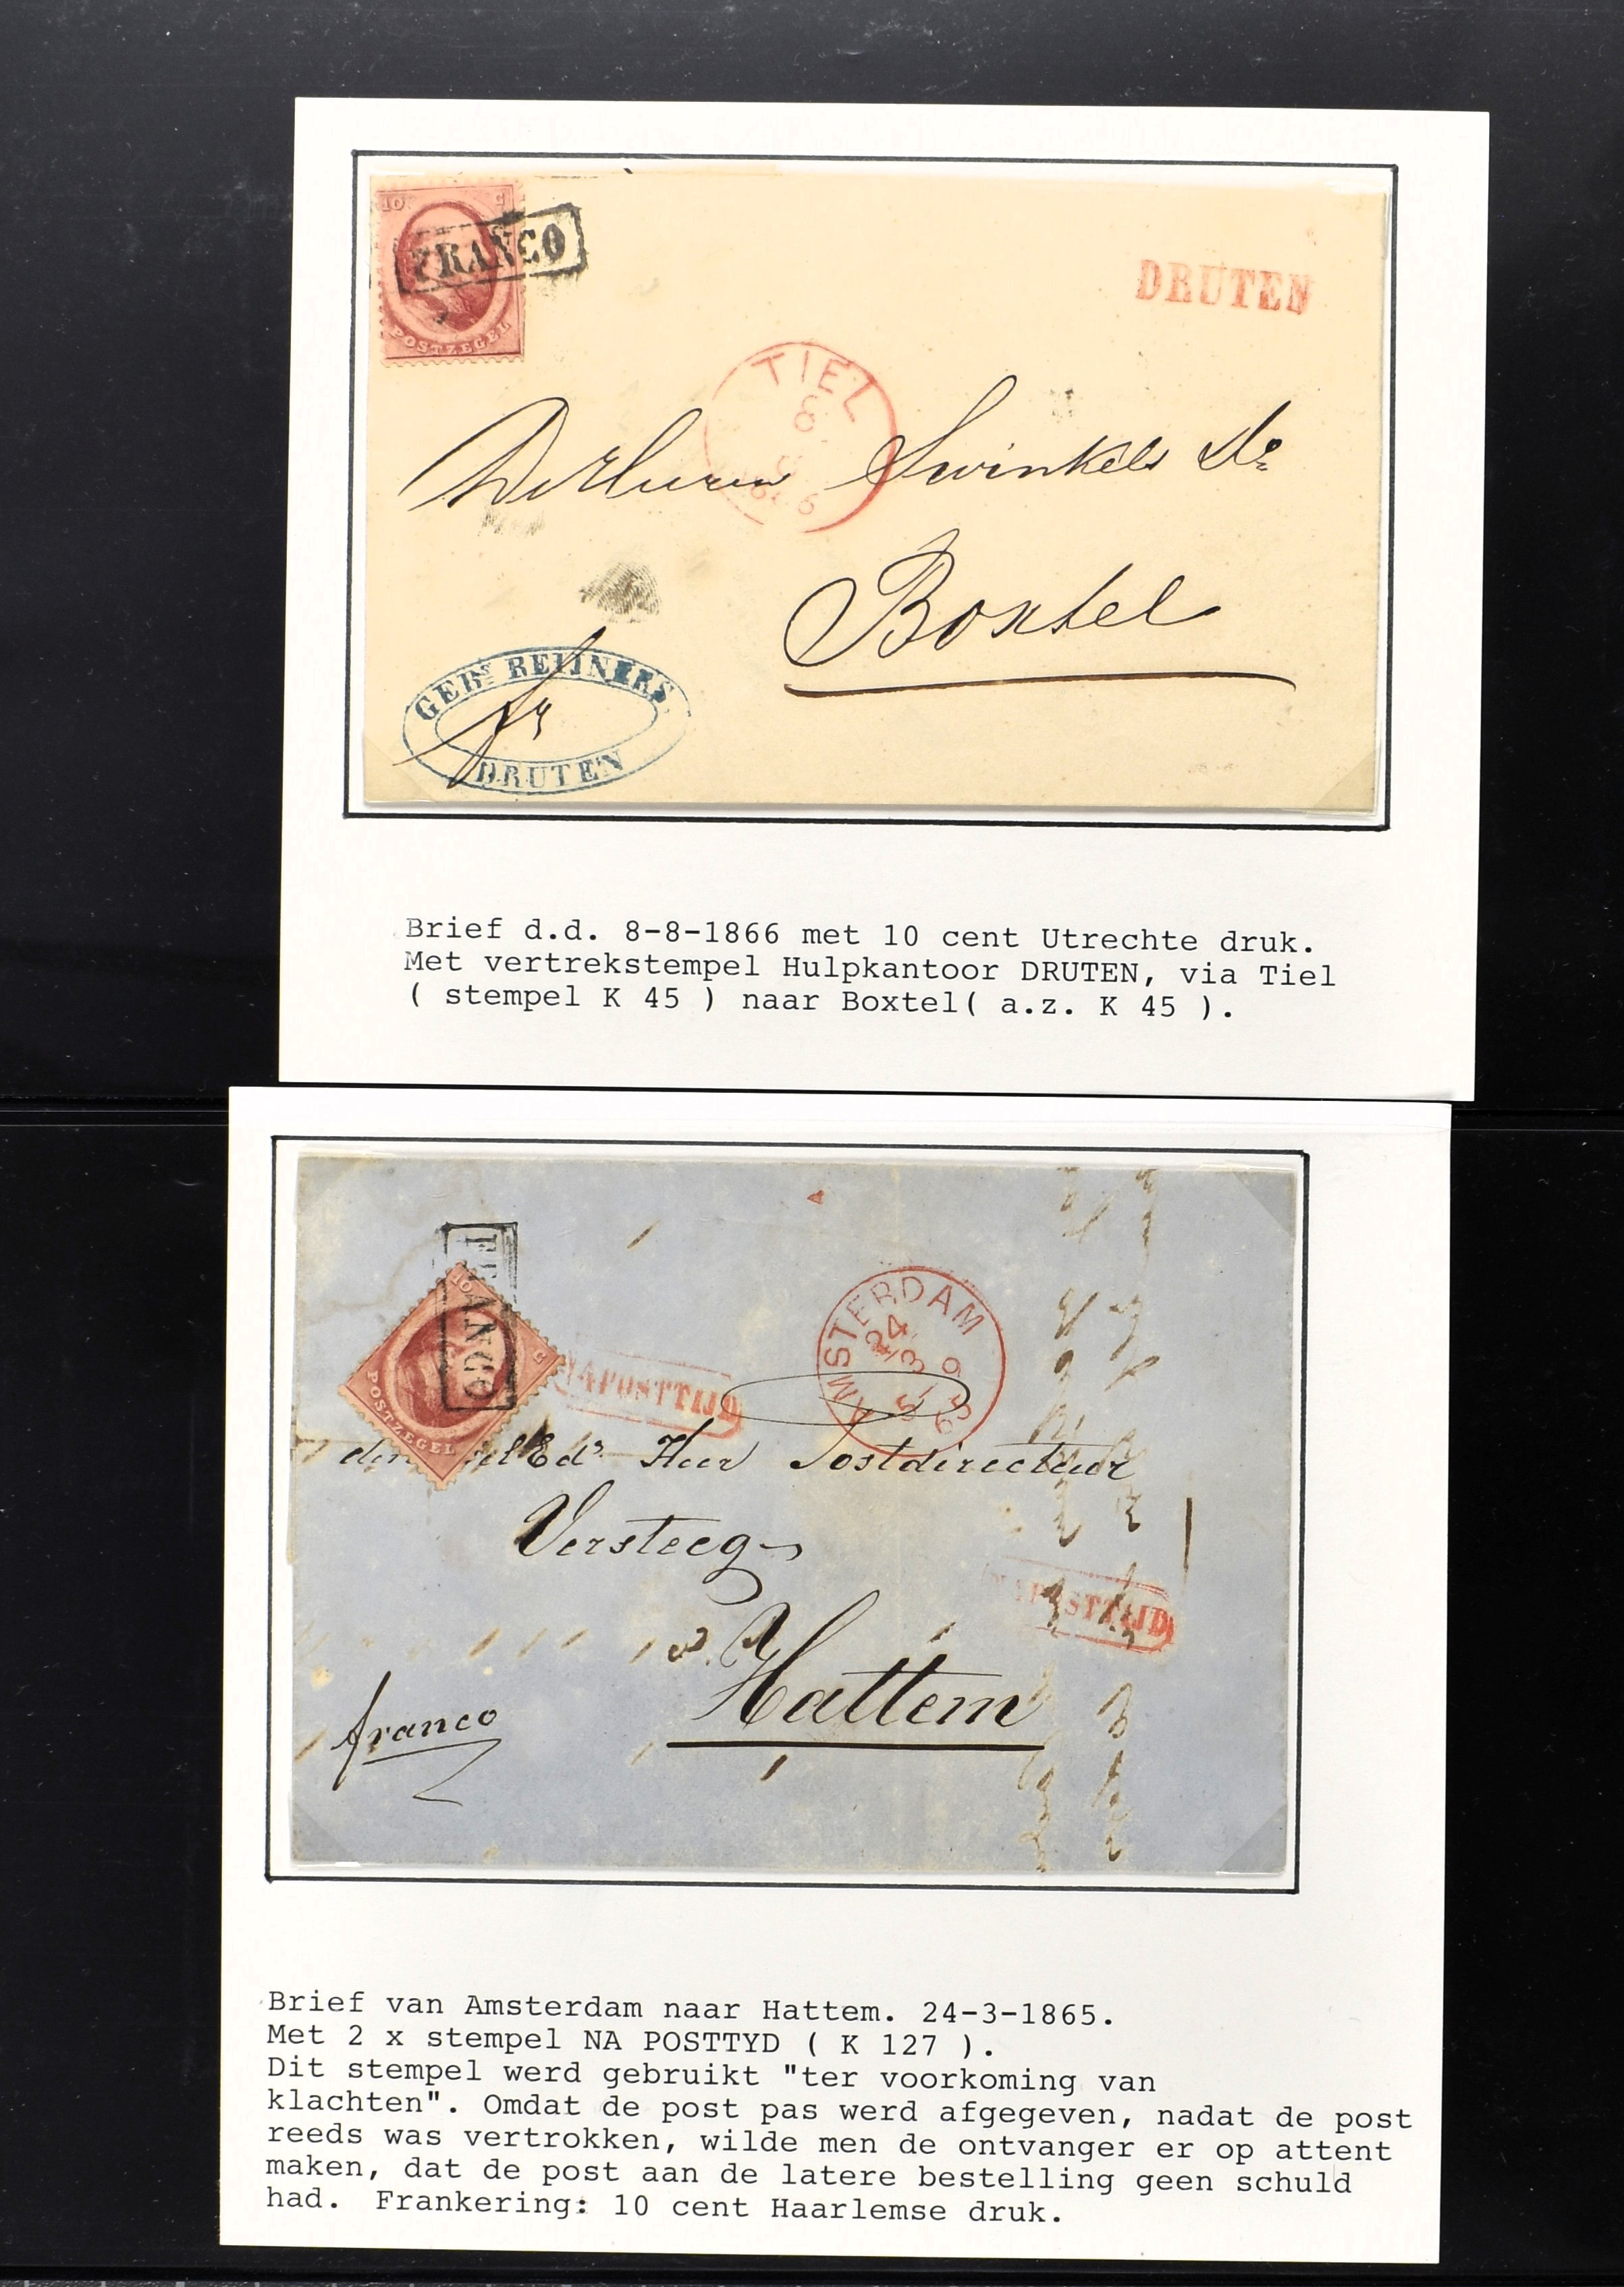 10 C
FRANCO
POSTZEGEL
DRUTEN
TIEL
8
8
1866
De Heeren Swinkels &c
Boxtel
GEBRS REIJNERS.
fr
DRUTEN
Brief d.d. 8-8-1866 met 10 cent Utrechte druk.
Met vertrekstempel Hulpkantoor DRUTEN, via Tiel
( stempel K 45 ) naar Boxtel( a.z. K 45 ).
FRANCO
10 C
POSTZEGEL
NA POSTTIJD
AMSTERDAM
24
3
65
den Ed. Heer Postdirecteur
Versteeg
NA POSTTIJD
Hattem
franco
Brief van Amsterdam naar Hattem. 24-3-1865.
Met 2 x stempel NA POSTTYD ( K 127 ).
Dit stempel werd gebruikt "ter voorkoming van
klachten". Omdat de post pas werd afgegeven, nadat de post
reeds was vertrokken, wilde men de ontvanger er op attent
maken, dat de post aan de latere bestelling geen schuld
had. Frankering: 10 cent Haarlemse druk.